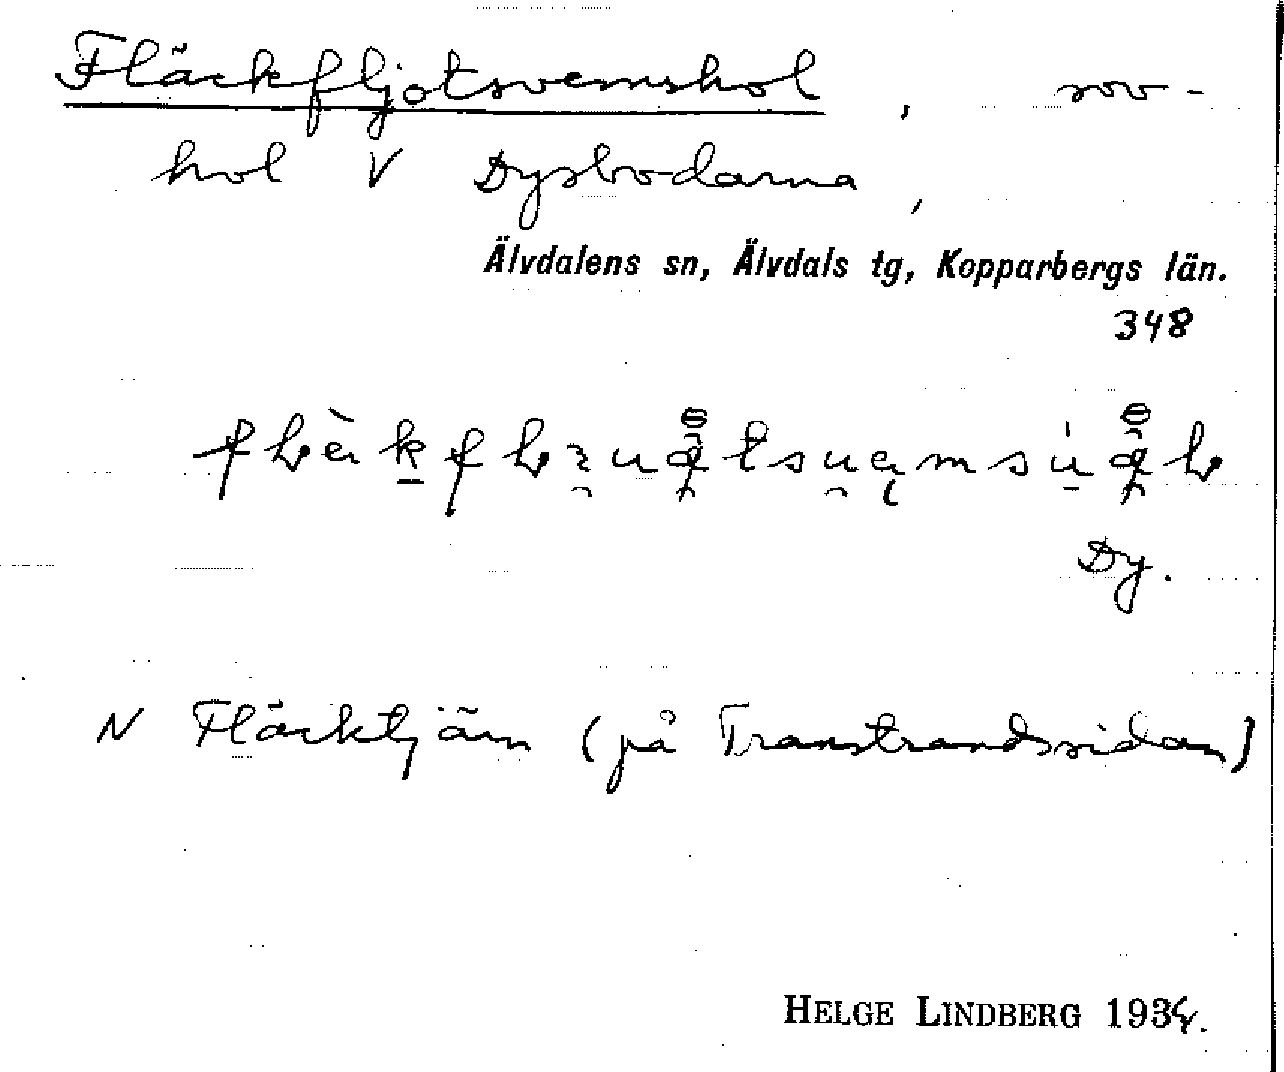 Fläckfljotsvemshol, sov-
hol V Dysbodarna,
Älvdalens sn, Älvdals tg, Kopparbergs län.
348
Dy.
N Fläcktjärn (på Transtrandssidan)
HELGE LINDBERG 1934.